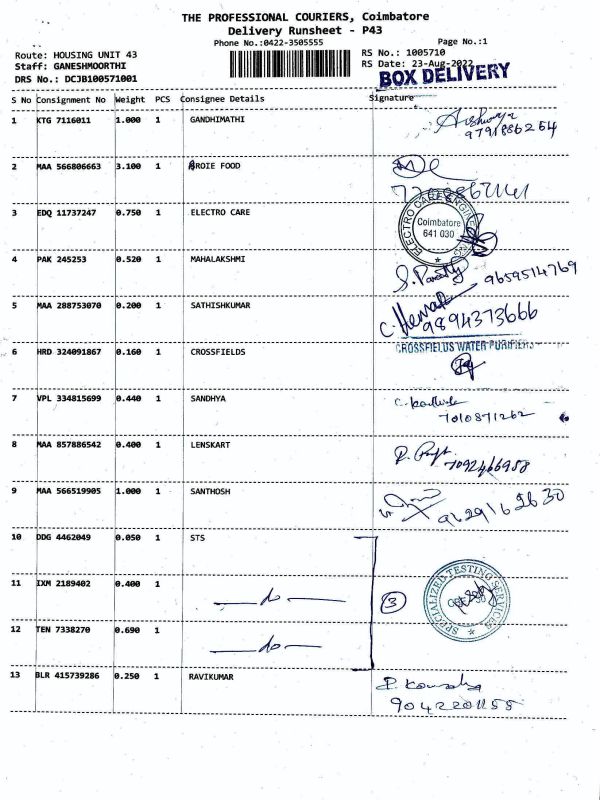 THE PROFESSIONAL COURIERS, Coimbatore
Delivery Runsheet - P43
Phone No.:0422-3505555 Page No.:1
Route: HOUSING UNIT 43 RS No.: 1005710
Staff: GANESHMOORTHI RS Date: 23-Aug-2022
DRS No.: DCJB100571001 BOX DELIVERY
S No Consignment No Weight PCS Consignee Details Signature
1 KTG 7116011 1.000 1 GANDHIMATHI Aishwarya
9791886264
2 MAA 566806663 3.100 1 BROIE FOOD
3 EDQ 11737247 0.750 1 ELECTRO CARE ELECTRO CARE ENGINEERING
Coimbatore
641 030
4 PAK 245253 0.520 1 MAHALAKSHMI
9659514769
5 MAA 288753070 0.200 1 SATHISHKUMAR C. Hema
9894373666
6 HRD 324091867 0.160 1 CROSSFIELDS CROSSFIELDS WATER PURIFIERS
7 VPL 334815699 0.440 1 SANDHYA
7010871262
8 MAA 857886542 0.400 1 LENSKART
7092466988
9 MAA 566519905 1.000 1 SANTHOSH
9629162630
10 DDG 4462049 0.050 1 STS
11 IXM 2189402 0.400 1 —do— 3 SPECIALIZED TESTING SERVICES
12 TEN 7338270 0.690 1 —do—
13 BLR 415739286 0.250 1 RAVIKUMAR
9042201155